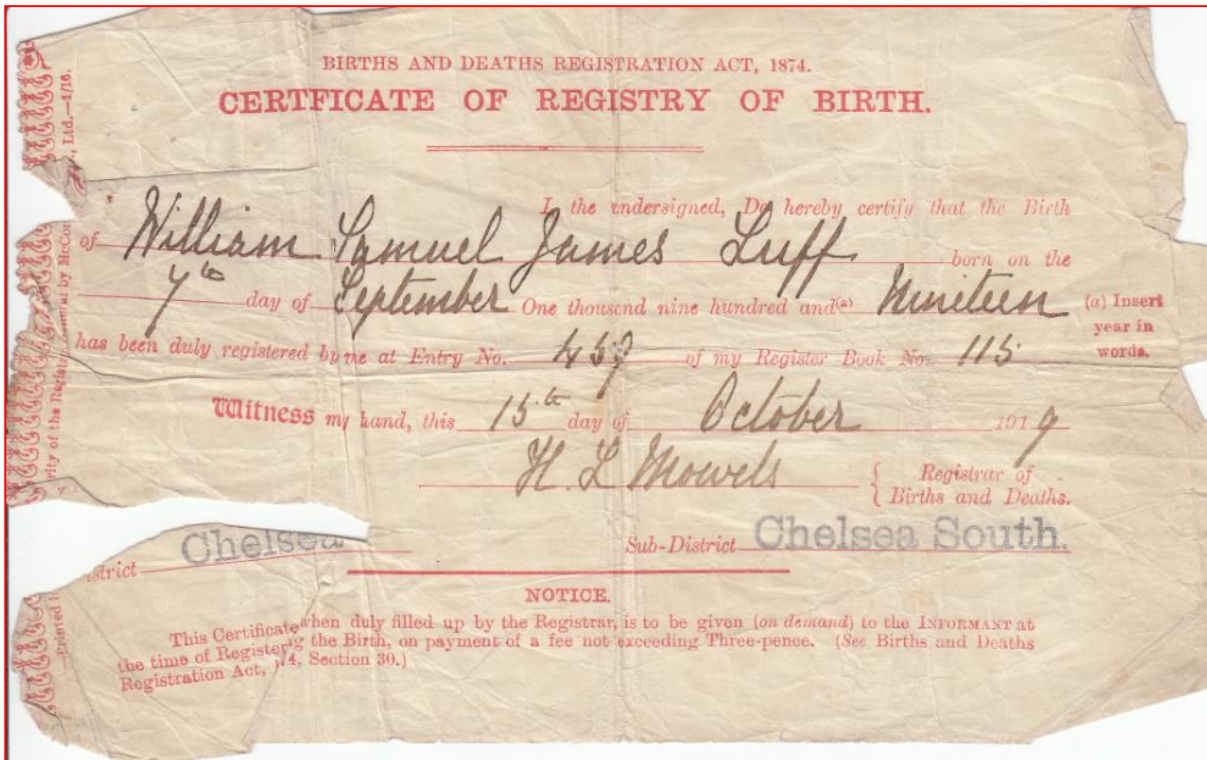 BIRTHS AND DEATHS REGISTRATION ACT, 1874.
CERTFICATE OF REGISTRY OF BIRTH.
I the undersigned, Do hereby certify that the Birth
of William Samuel James Luff born on the
7th day of September One thousand nine hundred and (a) Nineteen
(a) Insert year in words.
has been duly registered by me at Entry No. 459 of my Register Book No. 115
Witness my hand, this 15th day of October 1919
H. L Mowels
Registrar of
Births and Deaths.
strict Chelsea Sub-District Chelsea South.
NOTICE.
This Certificate when duly filled up by the Registrar, is to be given (on demand) to the INFORMANT at
the time of Registering the Birth, on payment of a fee not exceeding Three-pence. (See Births and Deaths
Registration Act, 74, Section 30.)
Ltd.—4/16.
rity of the Registrar General by McCor
Printed